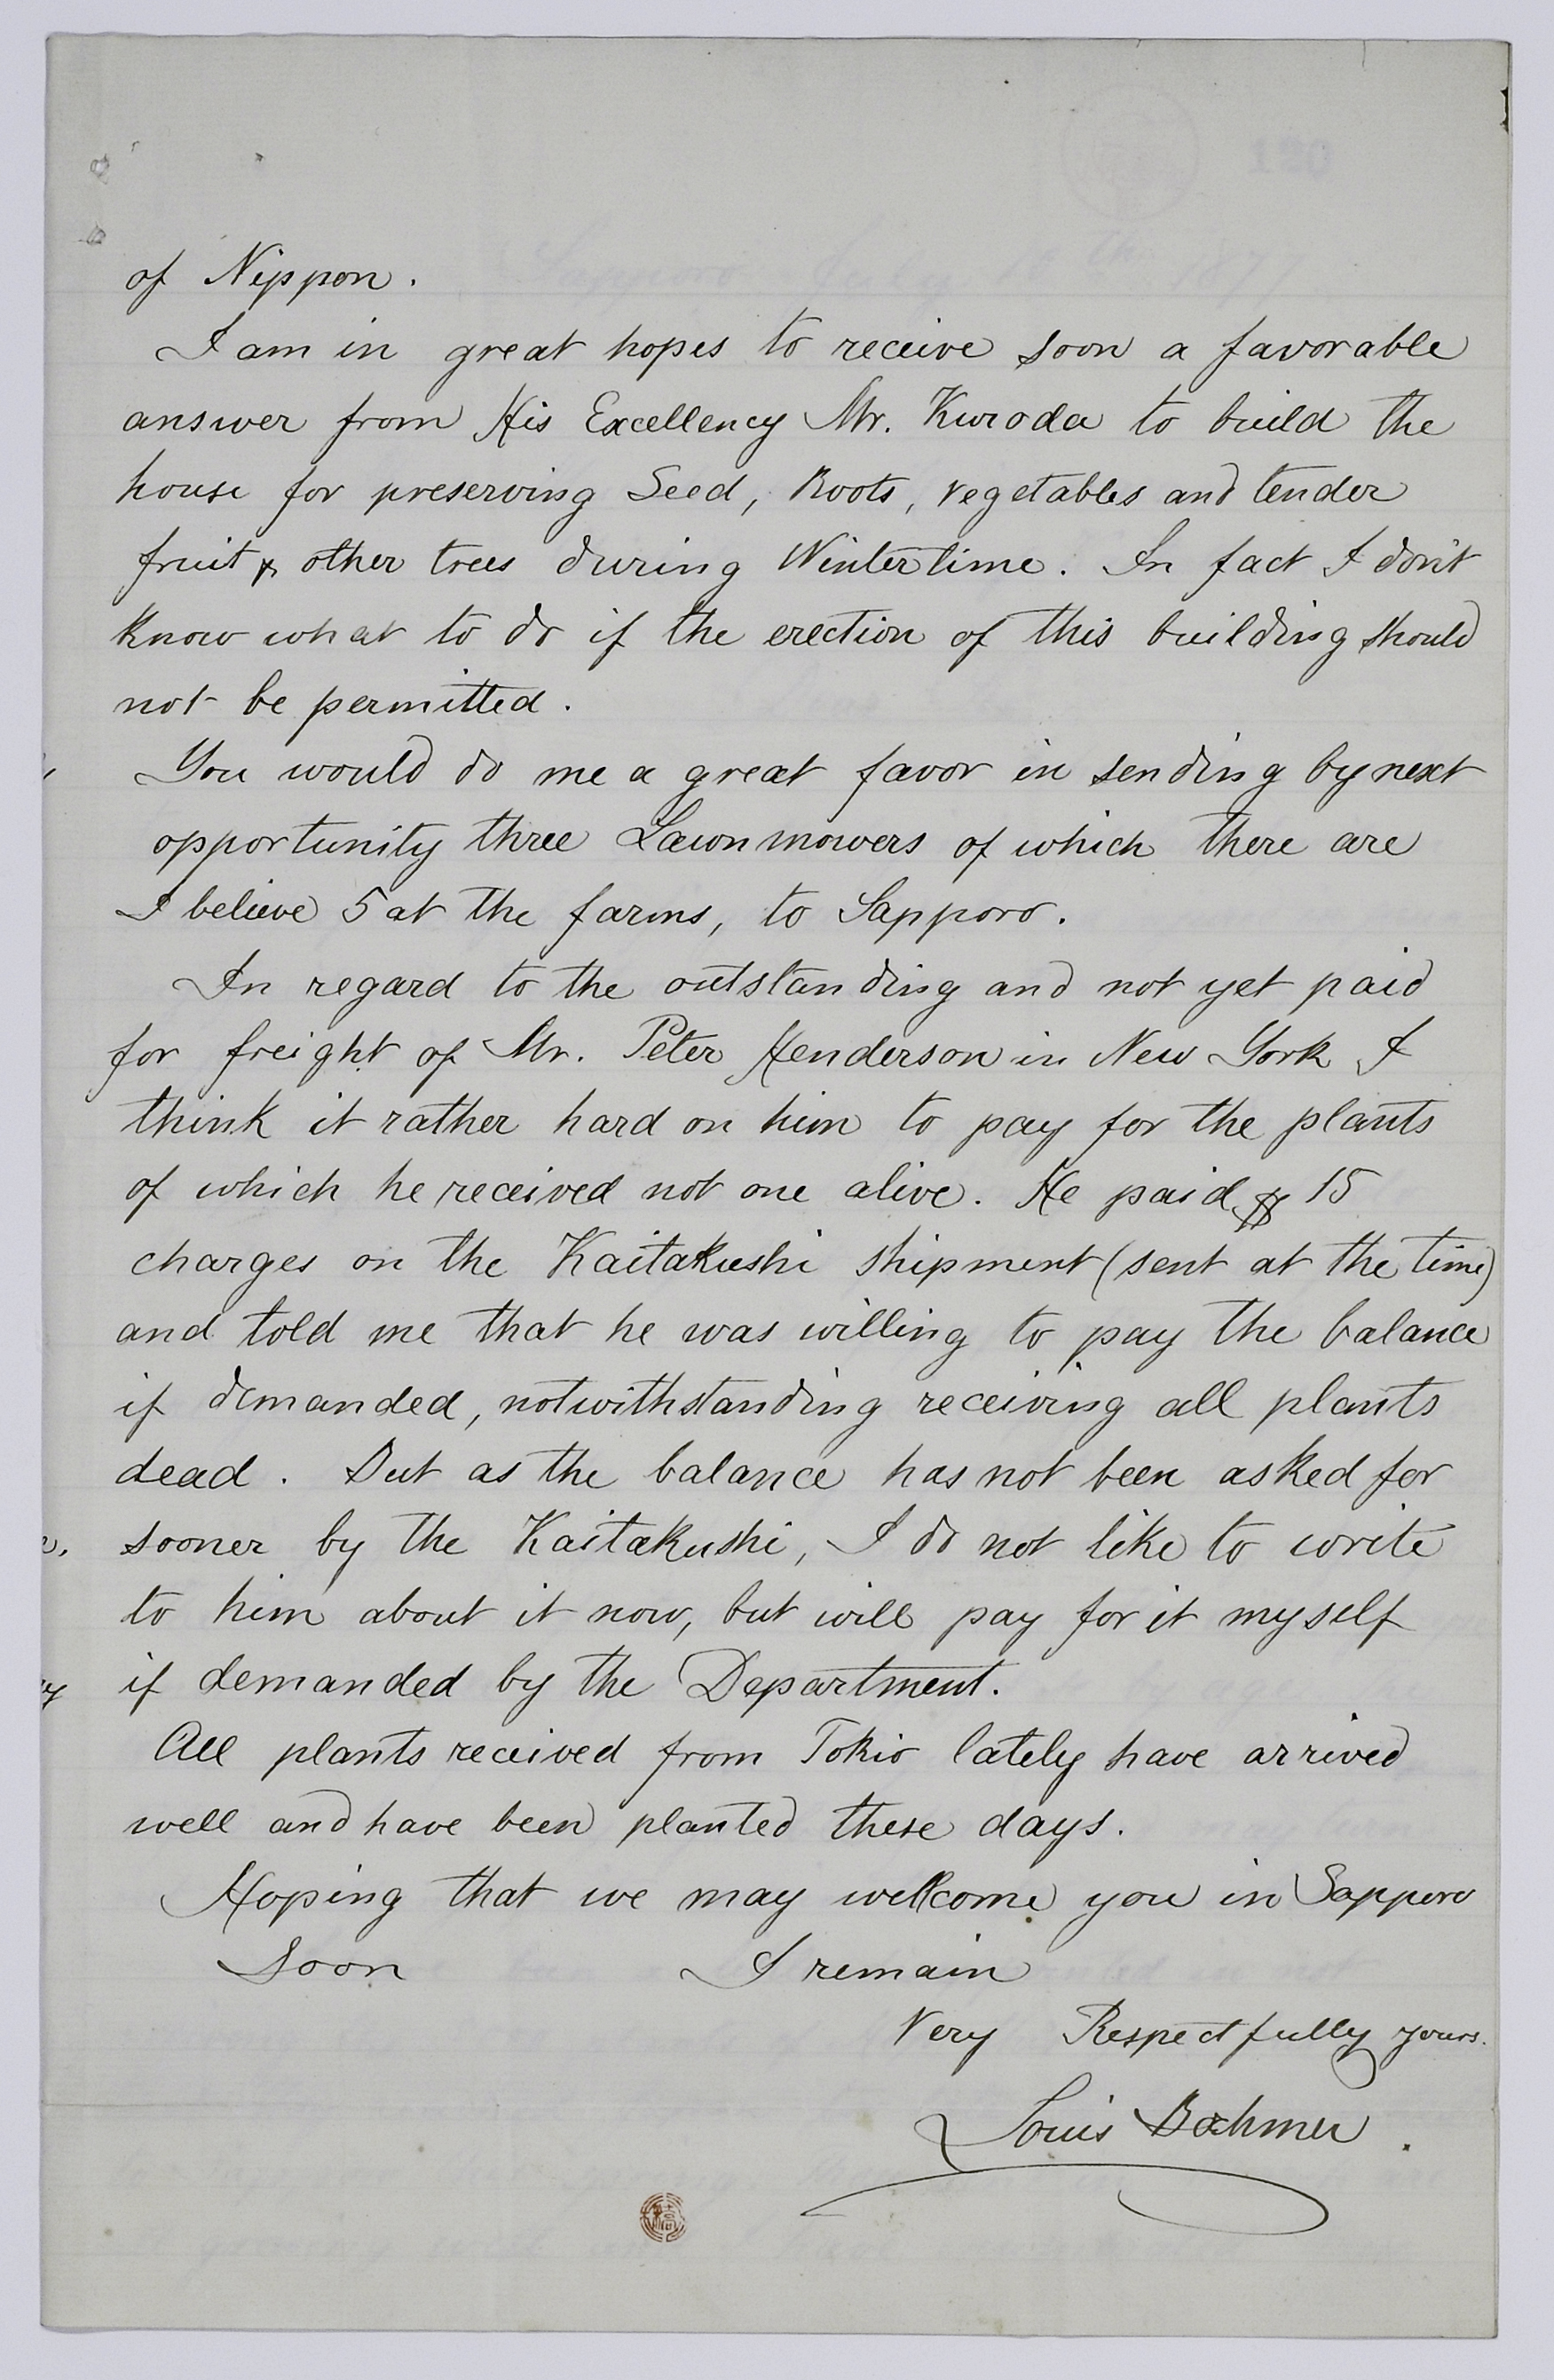 of Nippon.
I am in great hopes to receive soon a favorable
answer from His Excellency Mr. Kuroda to build the
house for preserving Seed, Roots, vegetables and tender
fruit & other trees during Wintertime. In fact I don't
know what to do if the erection of this building should
not be permitted.
You would do me a great favor in sending by next
opportunity three Lawnmowers of which there are
I believe 5 at the farms, to Sapporo.
In regard to the outstanding and not yet paid
for freight of Mr. Peter Henderson in New York I
think it rather hard on him to pay for the plants
of which he received not one alive. He paid $ 15
charges on the Kaitakushi shipment (sent at the time)
and told me that he was willing to pay the balance
if demanded, notwithstanding receiving all plants
dead. But as the balance has not been asked for
sooner by the Kaitakushi, I do not like to write
to him about it now, but will pay for it myself
if demanded by the Department.
All plants received from Tokio lately have arrived
well and have been planted these days.
Hoping that we may wellcome you in Sapporo
Soon I remain
Very Respectfully yours.
Louis Boehmer.